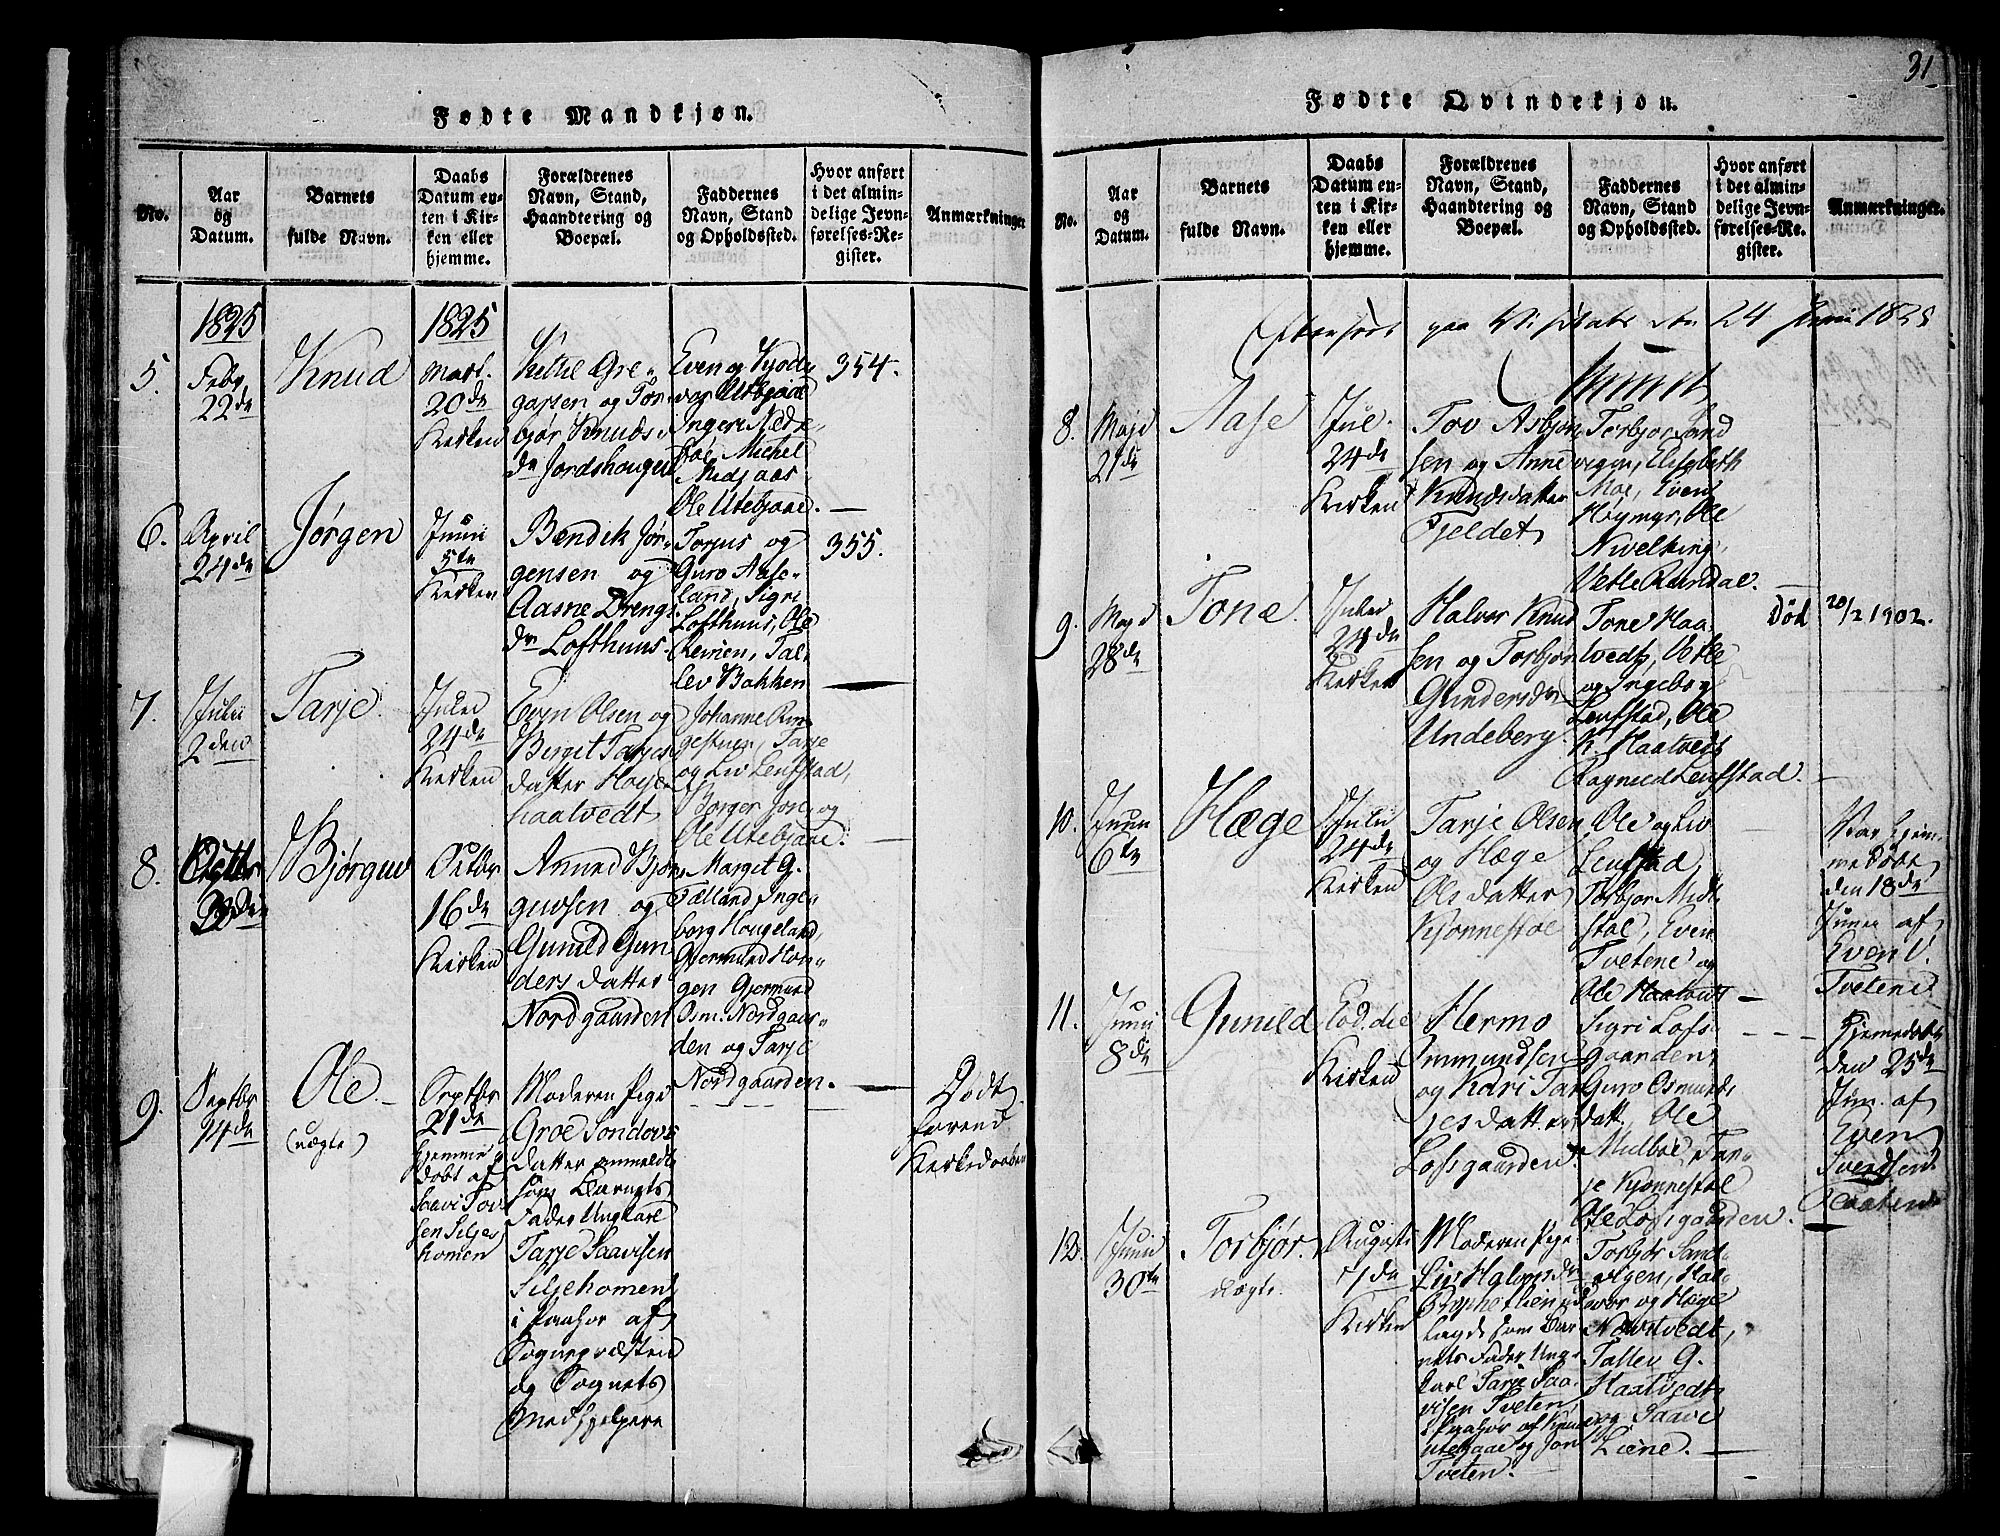 31
Fødte Mandkjøn.
No.
Aar
og
Datum.
Barnets
fulde Navn.
Daabs
Datum en-
ten i Kir-
ken eller
hjemme.
Forældrenes
Navn, Stand,
Haandtering og
Boepæl.
Faddernes
Navn, Stand
og Opholdssted.
Hvor anført
i det almin-
delige Jevn-
førelses-Re-
gister.
Anmærkninger
1825
5.
Febr
22de
Knud
1825
Mart.
20de
Kirken
Kittil Gre-
gersen og Tor
bjør Knuds
dr Jordshougen
Even og
Utebjaae
Ingeri Neds
støl, Michel
Ole Utebjaae.
354.
6.
April
24de
Jørgen
Junii
5te
Kirken
Bendik Jør-
gensen og
Aasne Drengs
dr Lofthuus.
Torjus og
Guro Aase-
land, Sigri
Lofthuus, Ole
Tal-
lev Bakken
355.
7.
Julii
2den
Tarje.
Julii
24de
Kirken
Even Olsen og
Birgit Tarjes
datter
haatvedt
Johanne Rin-
gestuen, Tarje
og Liv Leufstad,
Borger Jons, og
Ole Utebjaae.
8.
Bjørguv
Octbr
16de
Kirken
Amund Bjør
guvsen og
Gunild Gun
ders datter
Nordgaarden
Margit G.
Tælland, Inge-
borg Hougeland,
Gjermund Hou-
gen Gjermund
Osm. Nordgaar-
den og Tarje
Nordgaarden.
9.
Septbr
14de
Ole
(uægte)
Septbr
21de
hjemme
døbt af
Saavi Tov
sen Silje
homen
Moderen Pige
Groe Sondovs
datter anmeldt
som Barnets
Fader Ungkarl
Tarje Saavisen
Siljehomen
i Paahør af
Sognepræsten
og Sognets
Medhjelpere
Dødt
forend
Kirkedaaben
Fødte Qvindekjøn.
No.
Aar
og
Datum.
Barnets
fulde Navn.
Daabs
Datum en-
ten i Kir-
ken eller
hjemme.
Forældrenes
Navn, Stand,
Haandtering og
Boepæl.
Faddernes
Navn, Stand
og Opholdssted.
Hvor anført
i det almin-
delige Jevn-
førelses-Re-
gister.
Anmærkninger.
Efterseet paa Visitats den 24 Juni 1825
8.
Maji
21de
Aase
Jul.
24de
Kirken
Tov Asbjøn
sen og Anne
Knudsdatter
Fjeldet
Torbjør Sand
vigen, Elisabeth
Moe, Even
Høymyr, Ole
Vetle Rundal.
9.
Maji
28de
Tone
Julii
24de
Kirken
Halvor Knud
sen og Torbjør
Gundersdr
Undeberg.
Tone Haa-
tvedt, Vetle
og Ingeborg
Leufstad, Ole
K. Haatvedt
Ragnild Leufstad.
Død 20/2 1902.
10.
Juni
6te
Hæge
Julii
24de
Kirken
Tarje Olsen
og Hæge
Ols datter
Kjønnestøl
Ole og Liv
Leufstad,
Torbjør Midt
støl, Even
Tvetene og
Ole Haatvedt
Var hjem-
medøbt
den 18de
Junii af
Even V.
Tvetene
11.
Junii
8de
Gunild
Eod. die
Kirken
Hermo
Ammundsen
og Kari Tar
jesdatter
Lofsgaarden.
Sigri Lofs-
gaarden,
Guro Osmunds
datt., Ole
Midbøe, Tar-
je Kjønnestøl
Ole Lofsgaarden.
Hjemedøbt
den 25de
Jun. af
Even
Svendsen
12.
Junii
30te
Torbjør.
uægte.
Augusti
7de
Kirken
Moderen Pige
Liv Halvorsdr
ud
lagde som Bar
nets Fader Ung-
karl Tarje Saa-
visen Tveten,
i Paahør af Knud
Utebjaae og Jon
Tveten.
Torbjør Sand-
vigen, Hal-
vor og Hæge
Nørstvedt,
Tallev G.
Haatvedt
og Saave
Liene.